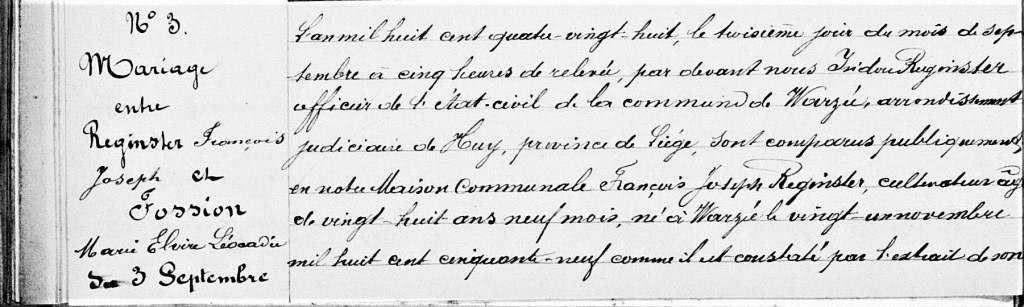 N° 3.
Mariage
entre
Reginster François
Joseph et
Fossion
Marie Elvire Léocadie
3 Septembre
L'an mil huit cent quatre-vingt-huit, le troisième jour du mois de sep-
tembre à cinq heures de relevée, par devant nous Isidore Reginster
officier de l'état-civil de la commune de Warzée, arrondissement
judiciaire de Huy, province de Liége, sont comparus publiquement,
en notre Maison Communale François Joseph Reginster, cultivateur âgé
de vingt-huit ans neuf mois, né à Warzée le vingt-un novembre
mil huit cent cinquante-neuf comme il est constaté par l'extrait de son